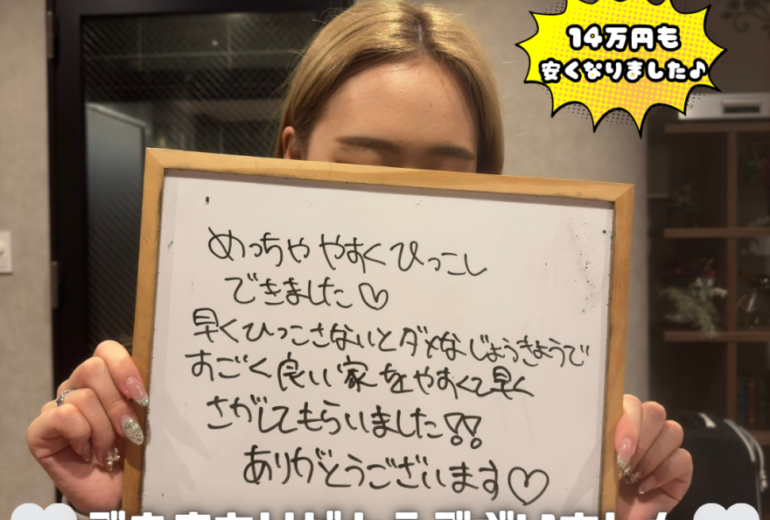 14万円も
安くなりました♪
めっちゃやすくひっこし
できました♡
早くひっこさないとダメなじょうきょうで
すごく良い家をやすくて早く
さがしてもらいました!!
ありがとうございます♡